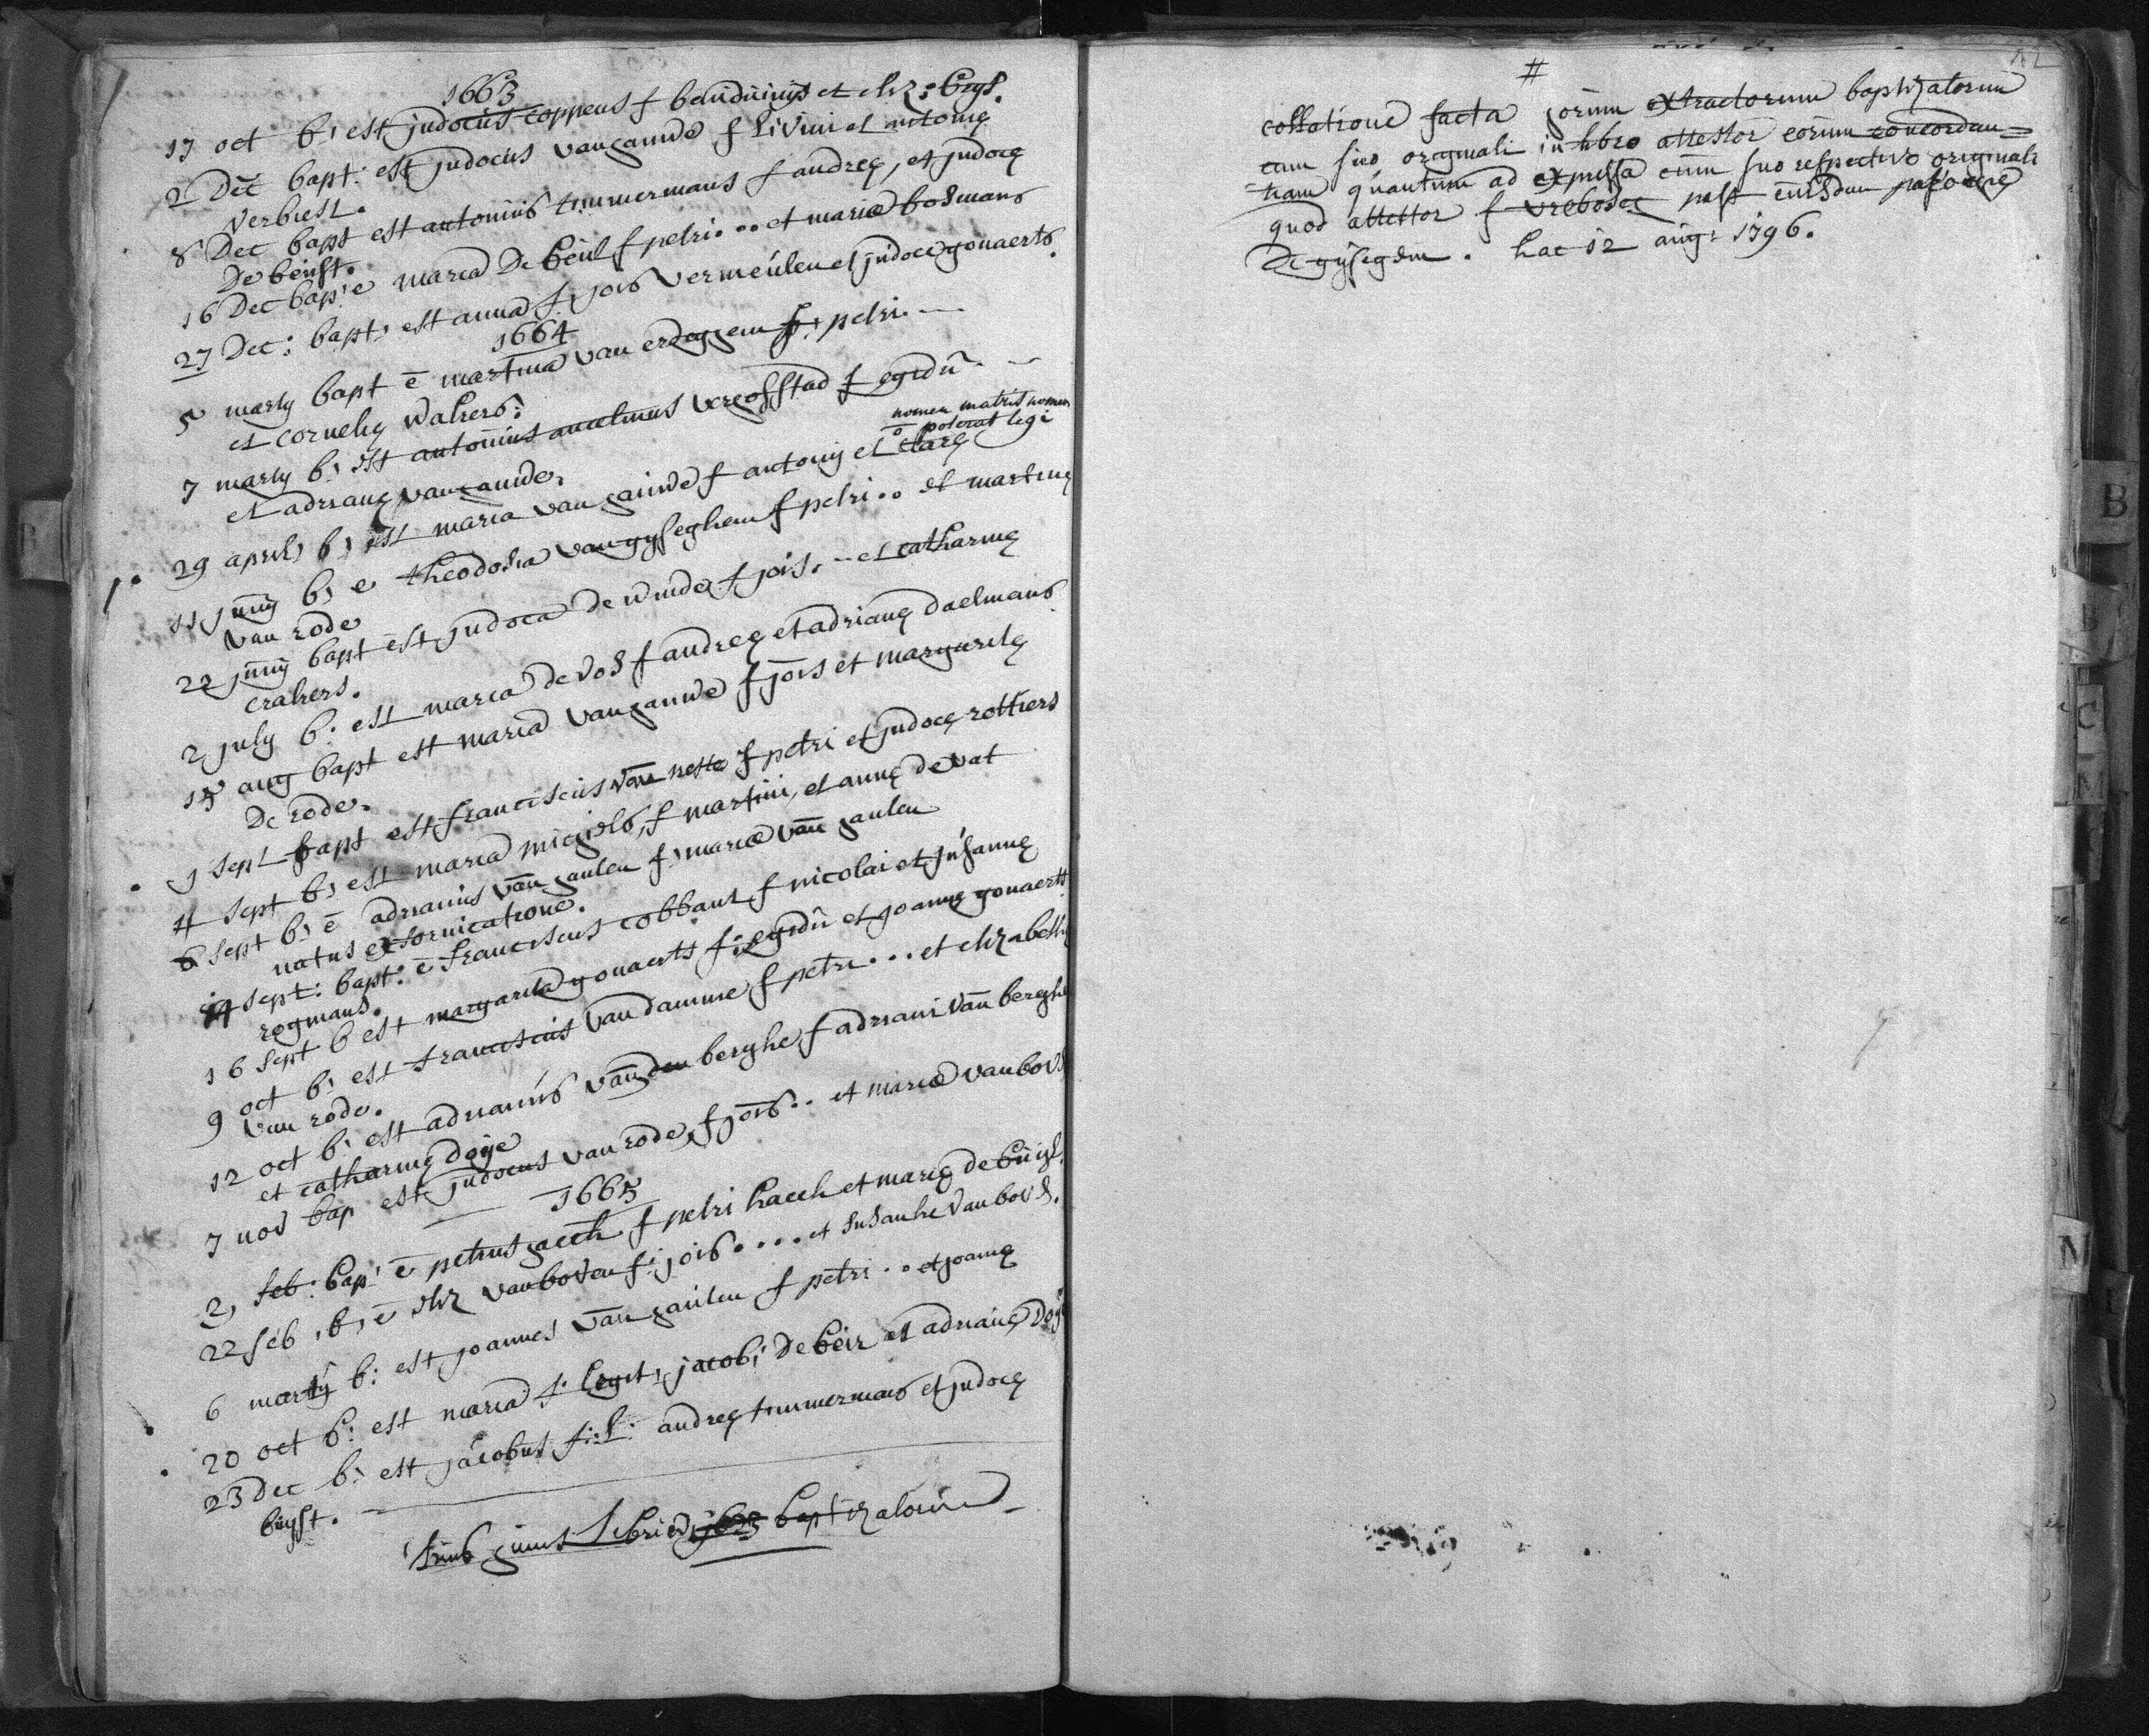 1663
17 oct b: est judocus coppens f bauduinijs et eliz: buys.
2 Dec bapt: est judocus van gauwe f Livini et antonię
verbiest.
8 Dec bapt est antonius timmermans f andreę, et judocę
De beust.
16 Dec bap: e maria De beul f petri... et mariæ bosmans
27 Dec: bapt: est anna f jois vermeulen et judocę gouaerts.
1664
5 martij bapt ē martina van erdegem f: petri. —
et cornelię walrers:
7 martij b: est antonius anselmus vreghstad f egidii. —
et adrianę van gauwe.
nomen matris nomen
o poterat legi
29 april, b, est maria van gauwe f antonij et clarę
11 junij b, e theodosia van gyseghem f petri.. et martinę
van rode
22 junij bapt est judoca de winde f jois. -- et catharinę
crabers.
2 july b: est maria de vos f andreę et adrianę daelmans
15 aug bapt est maria van gauwe f jois et margaretę
De rode.
1 sept bapt est franciscus van nesse f petri et judocę rottiers
4 sept b, est maria migiels, f martini, et annę de vat
6 sept b, ē adrianus van gaulen f, mariæ van gaulen
natus ex fornicatione.
14 sept: bapt: ē franciscus cobbaut f nicolai et susannę
rogmans.
16 sept b est margareta gouaerts f: egidii et joannę gouaerts
9 oct b, est franciscus van damme f petri... et elizabethę
van rode.
12 oct b: est adrianus van den berghe f adriani van berghe
et catharinę doye
7 nov bap est judocus van rode, f jois.. et mariæ van bovs
1665
2, feb: bap: ē petrus haech f petri haech et marię de buijs.
22 feb, b, ē eliz van boven f: jois.... et susanne van bovs.
6 martij b: est joannes van gaulen f petri.. et joannę
20 oct b: est maria f: legit, jacobi de beir et adrianę doy
23 Dec b: est jacobus f:L: andreę timmermans et judocę
buyst. —
finis hujus Libri baptizatorum
#
collatione facta horum extractorum baptizatorum
cum suo originali in libro attestor eorum concordan=
=tiam quantum ad expressa cum suo respectivo originali
quod attestor f vrebosch past eiusdem parochię
De gysegem. hac 12 aug: 1796.
B
B
C
M
N